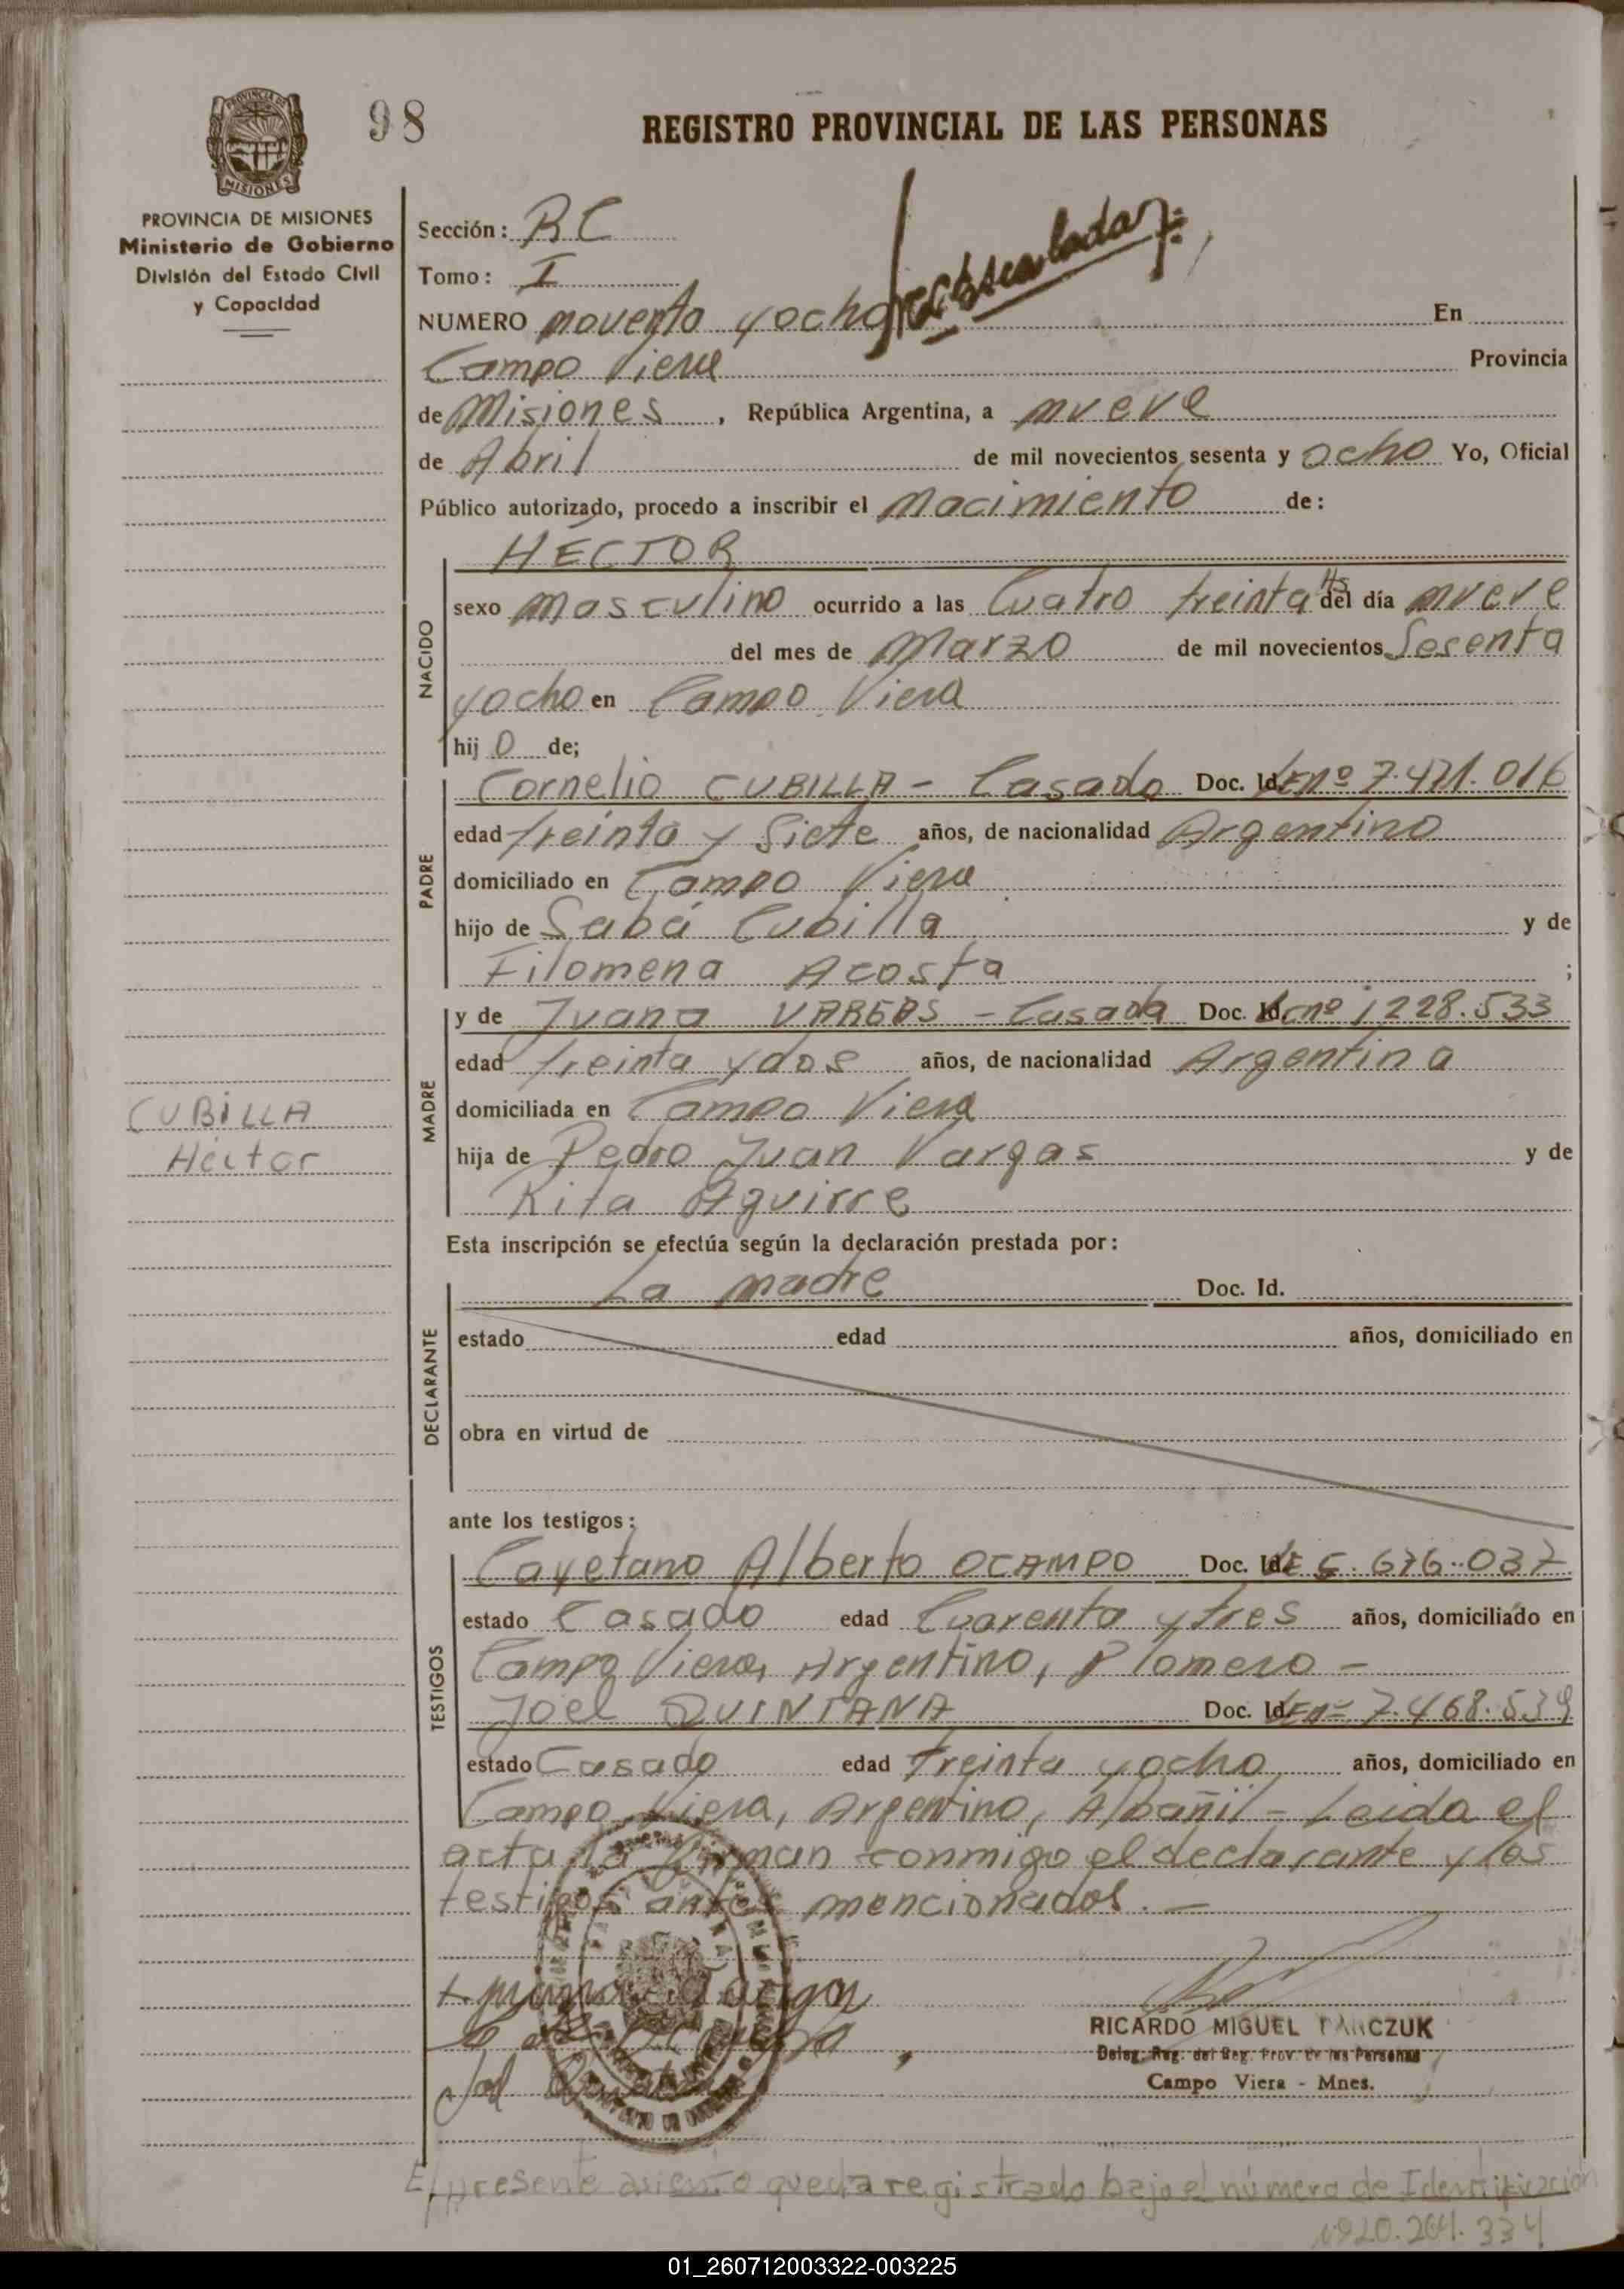 98
REGISTRO PROVINCIAL DE LAS PERSONAS
PROVINCIA DE MISIONES
MISIONES
PROVINCIA DE MISIONES
Ministerio de Gobierno
División del Estado Civil
y Capacidad
Sección: RC
Tomo: I
NUMERO noventa y ocho En
Campo Viera Provincia
de Misiones, República Argentina, a nueve
de Abril de mil novecientos sesenta y ocho Yo, Oficial
Público autorizado, procedo a inscribir el nacimiento de:
HECTOR
NACIDO
sexo masculino ocurrido a las Cuatro treinta Hs del día nueve
del mes de Marzo de mil novecientos Sesenta
y ocho en Campo Viera
hijo de;
PADRE
Cornelio CUBILLA - Casado Doc. Id. LE nº 7.471.016
edad treinta y Siete años, de nacionalidad Argentino
domiciliado en Campo Viera
hijo de Sabá Cubilla y de
Filomena Acosta ;
MADRE
y de Juana VARGAS - Casada Doc. Id. Lc nº 1228.533
edad treinta y dos años, de nacionalidad Argentina
domiciliada en Campo Viera
hija de Pedro Juan Vargas y de
Rita Aguirre
CUBILLA
Héctor
Esta inscripción se efectúa según la declaración prestada por:
DECLARANTE
La madre Doc. Id.
estado edad años, domiciliado en
obra en virtud de
ante los testigos:
TESTIGOS
Cayetano Alberto OCAMPO Doc. Id. LE 5.676.037
estado Casado edad Cuarenta y tres años, domiciliado en
Campo Viera, Argentino, Plomero -
Joel QUINTANA Doc. Id. LE nº 7.468.539
estado Casado edad treinta y ocho años, domiciliado en
Campo Viera, Argentino, Albañil - Leida el
acta la firman conmigo el declarante y los
testigos antes mencionados. -
RICARDO MIGUEL
Deleg. Reg. del Reg. Prov. de las Personas
Campo Viera - Mnes.
El presente asiento queda registrado bajo el número de Identificación
nº 20.264.334
01_260712003322-003225